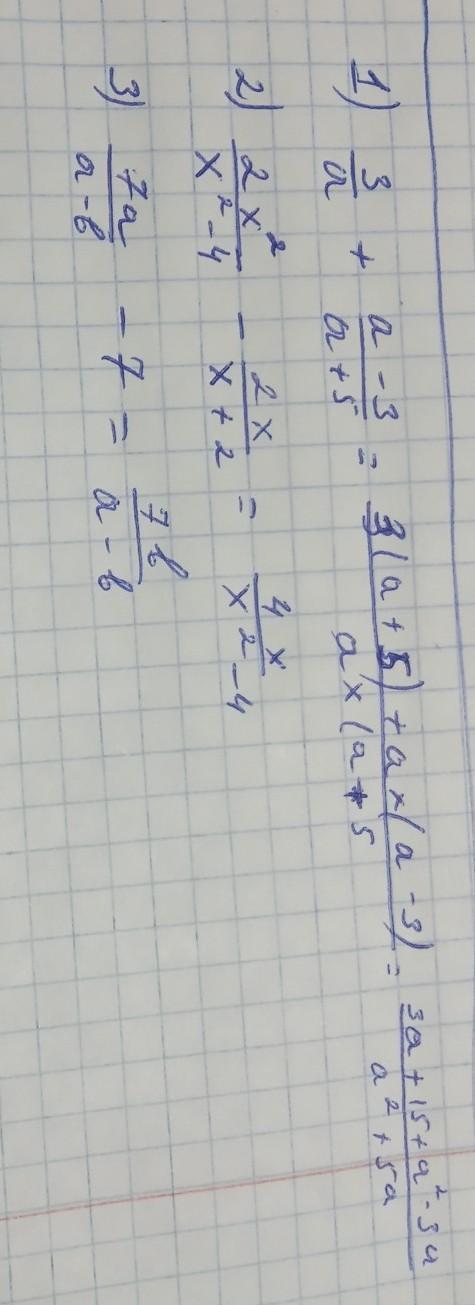 1) 3/a + (a-3)/(a+5) = (3(a+5)+a×(a-3))/(a×(a+5) = (3a+15+a²-3a)/(a²+5a)
2) 2x²/(x²-4) - 2x/(x+2) = 4x/(x²-4)
3) 7a/(a-b) - 7 = 7b/(a-b)